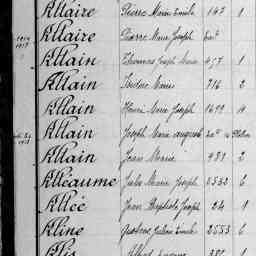 Allaire Pierre Marie Emile 147 1
Allaire Pierre Marie Joseph
Allain Thomas Joseph Marie 457 1
Allain Isidore Marie 716 2
Allain Henri Marie Joseph 1692 4
Allain Joseph Marie
Allain Jean Marie 481 2
Alléaume Jules Marie Joseph 2532 6
Allée Jean Baptiste Joseph 24 1
Aline Gustave Julien Emile 2553 6
Alis Albert 1